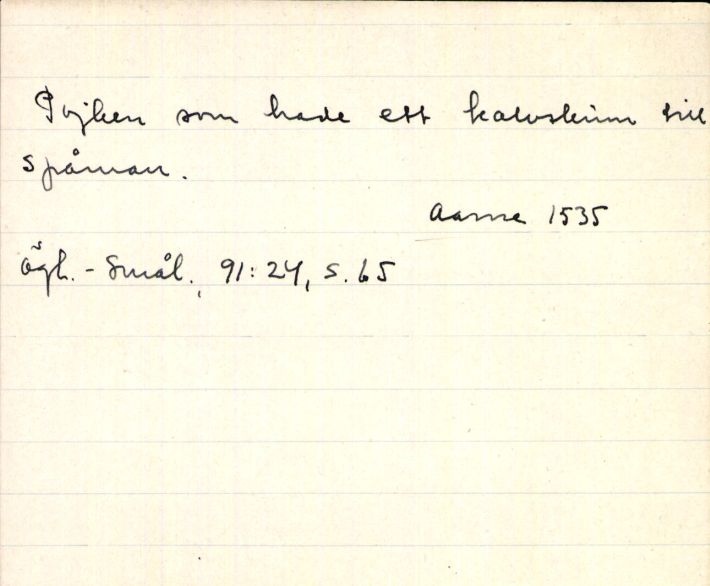 Pojken som hade ett kalvskinn till
spåman.
Aarne 1535
Ögl. - Smål., 91:24, s. 65